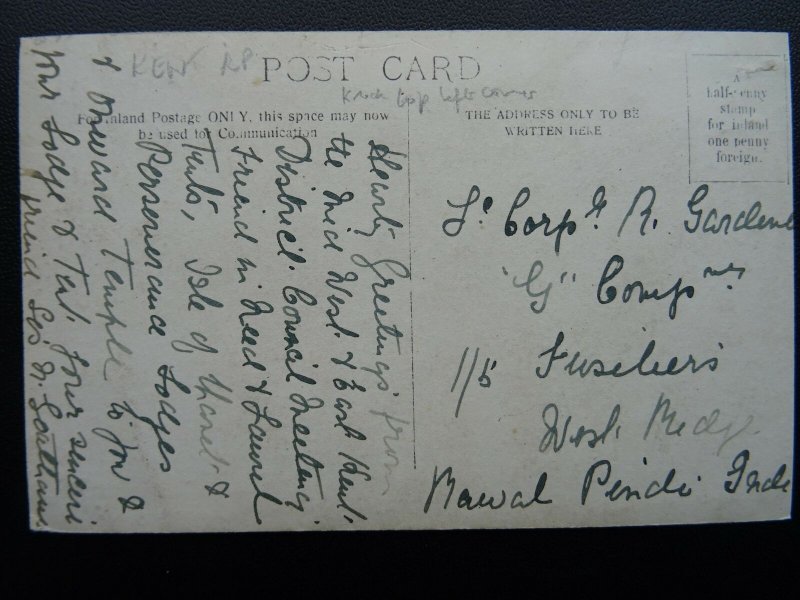 KENT RP
POST CARD
For Inland Postage ONLY, this space may now
be used for Communication
THE ADDRESS ONLY TO BE
WRITTEN HERE
A
half-penny
stamp
for inland
one penny
foreign.
Hearty Greetings from
the Mid West & East Kent
District Council Meeting
Friend in Need & Laurel
Tents, Isle of Thanet &
Perseverance Lodges
& Onward Temple to you &
your Lodge & Tent. Your sincere
friend
Le Corpl R. Gardene
"G" Compny
1/5 Fusiliers
West Ridge
Rawal Pindi Inda